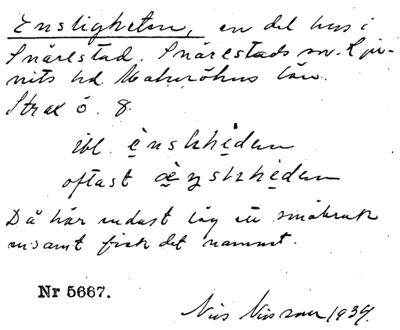 Ensligheten, en del hus i
Snårestad, Snårestads sn. Lju-
nits hd Malmöhus län.
Strax ö. 8.
ibl. ènslihẹdan
oftast
Då här endast låg ett småbruk
ensamt fick det namnet.
Nr 5667.
Nils Nilsson 1939.